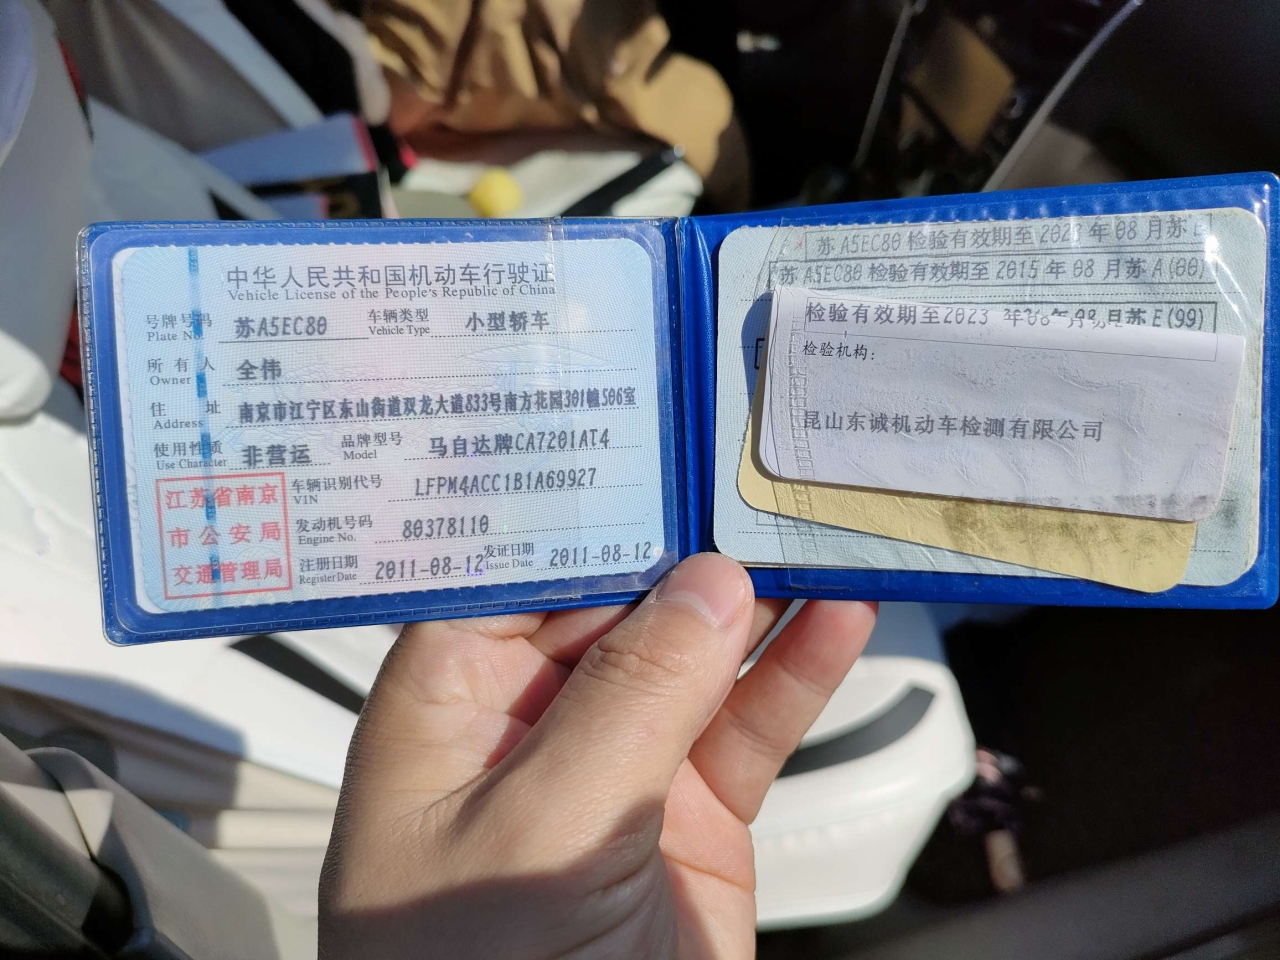 中华人民共和国机动车行驶证
Vehicle License of the People's Republic of China
号牌号码 苏A5EC80 车辆类型 小型轿车
Plate No. Vehicle Type
所有人 全伟
Owner
住址 南京市江宁区东山街道双龙大道833号南方花园301幢506室
Address
使用性质 非营运 品牌型号 马自达牌CA7201AT4
Use Character Model
江苏省南京
市公安局
交通管理局
车辆识别代号 LFPM4ACC1B1A69927
VIN
发动机号码 80378110
Engine No.
注册日期 2011-08-12 发证日期 2011-08-12
Register Date Issue Date
苏A5EC80检验有效期至2023年08月苏E
苏A5EC80检验有效期至2015年08月苏A(00)
检验有效期至2023年08月苏E(99)
检验机构：
昆山东诚机动车检测有限公司